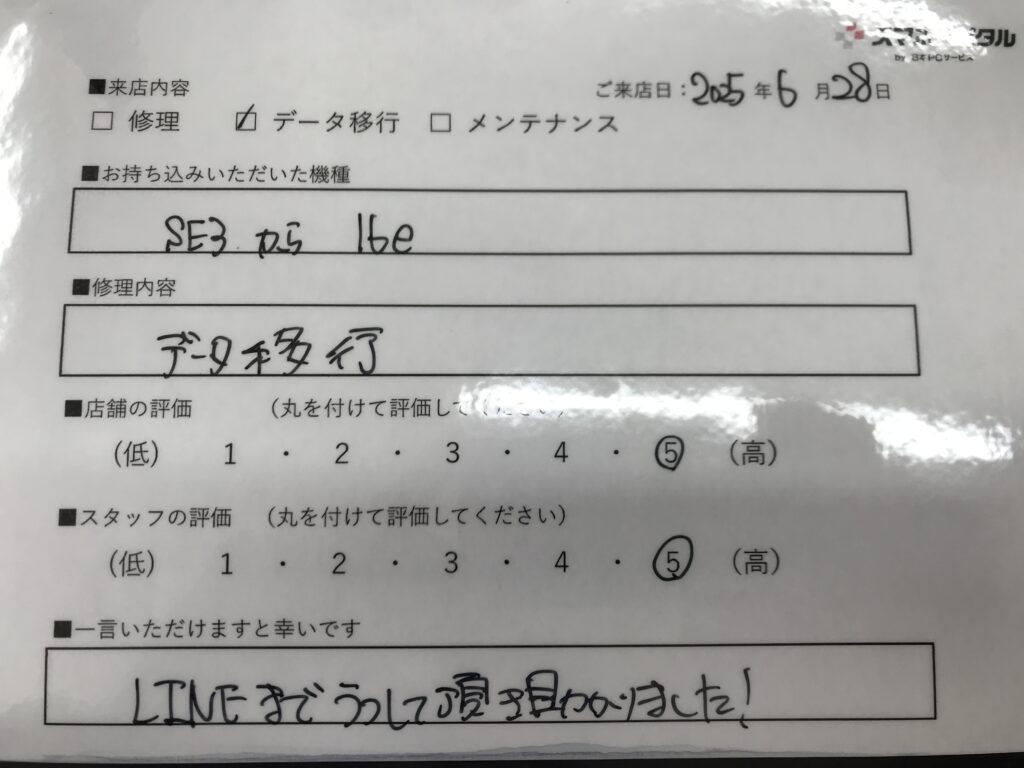 スマホスピタル
by 日本PCサービス
■来店内容
ご来店日:2025年6月28日
□ 修理 ☑ データ移行 □ メンテナンス
■お持ち込みいただいた機種
SE3 から 16e
■修理内容
データ移行
■店舗の評価 (丸を付けて評価してください)
(低) 1 ・ 2 ・ 3 ・ 4 ・ ⑤ (高)
■スタッフの評価 (丸を付けて評価してください)
(低) 1 ・ 2 ・ 3 ・ 4 ・ ⑤ (高)
■一言いただけますと幸いです
LINEまでうつして頂き助かりました!